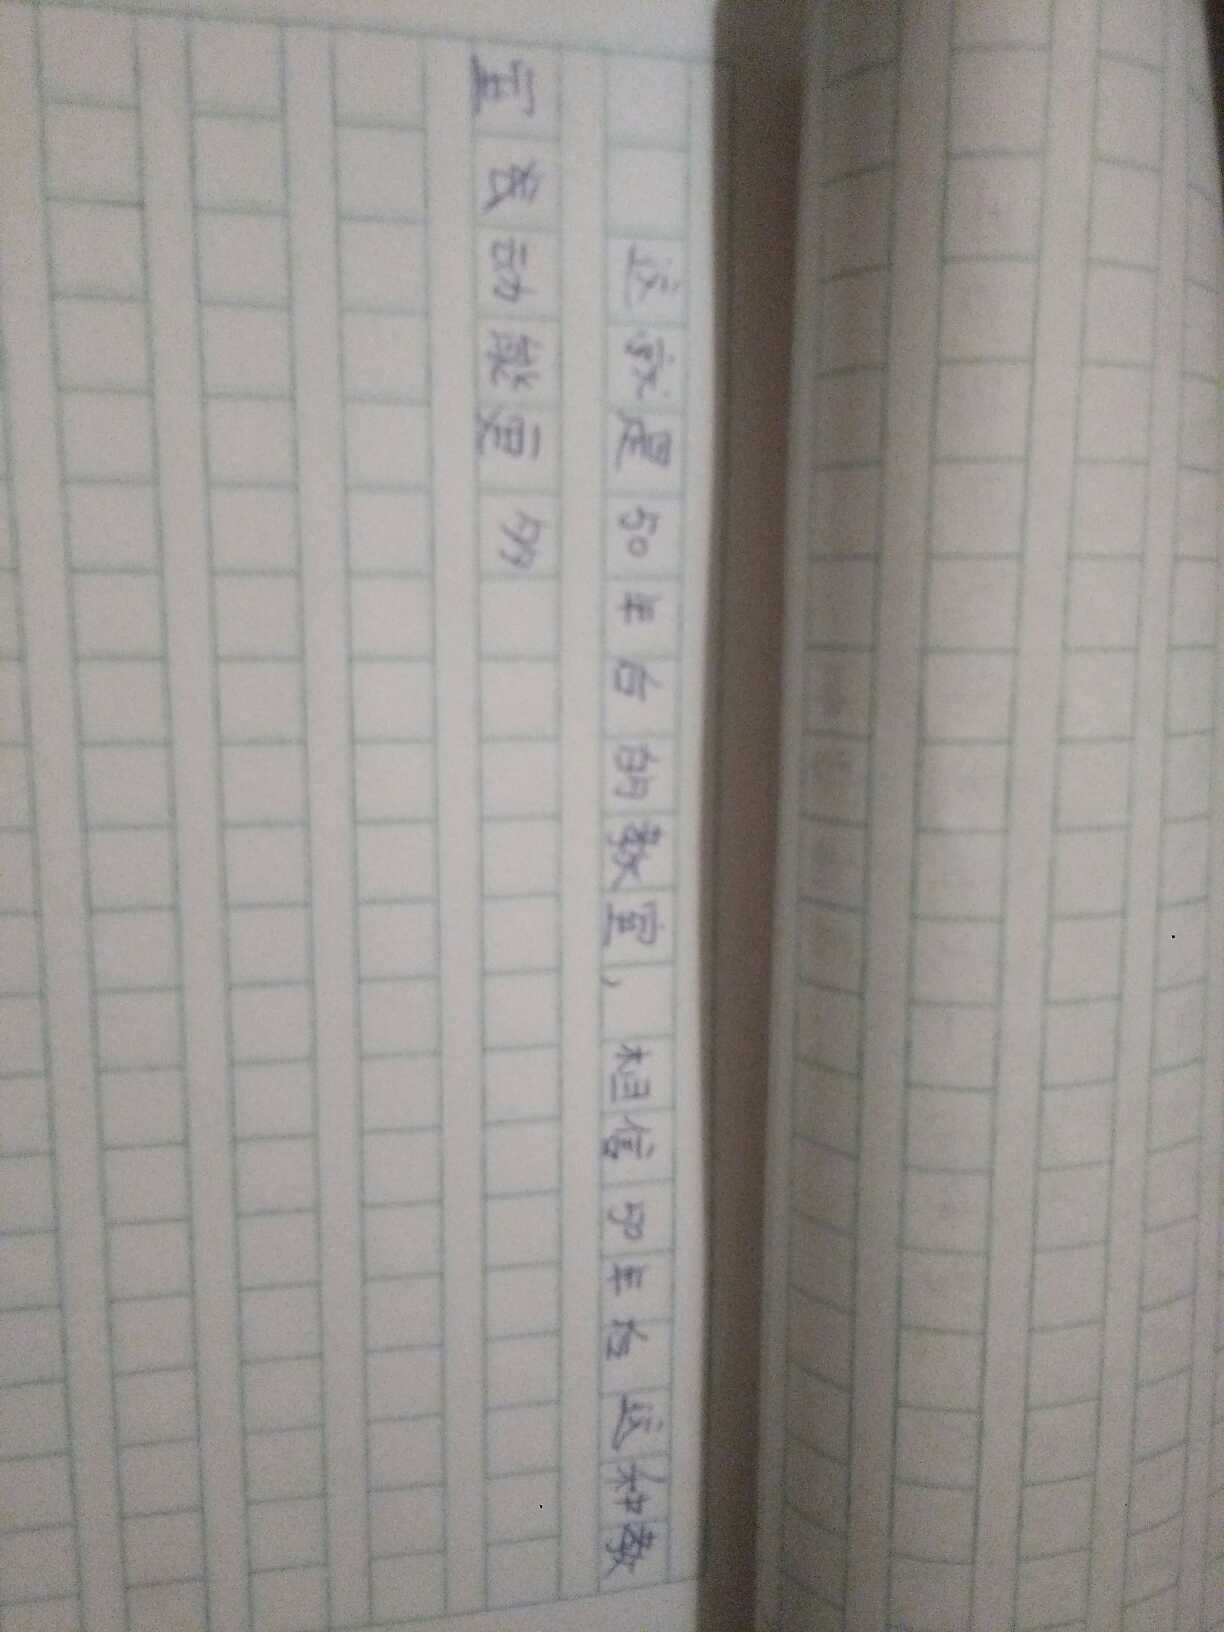 这就是50年后的教室，相信50年后这种教
室动能更多